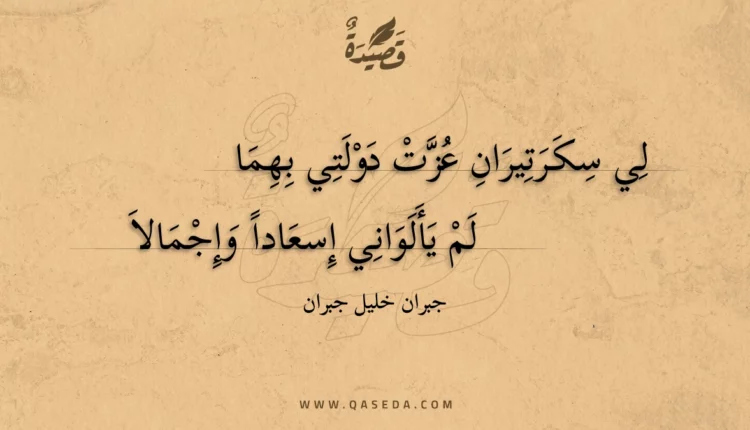 قَصِيدَةٌ
لِي سِكَرَتِيرَانِ عُزَّتْ دَوْلَتِي بِهِمَا
لَمْ يَأَلَوَانِي إِسعَاداً وَإِجْمَالاَ
جبران خليل جبران
WWW.QASEDA.COM